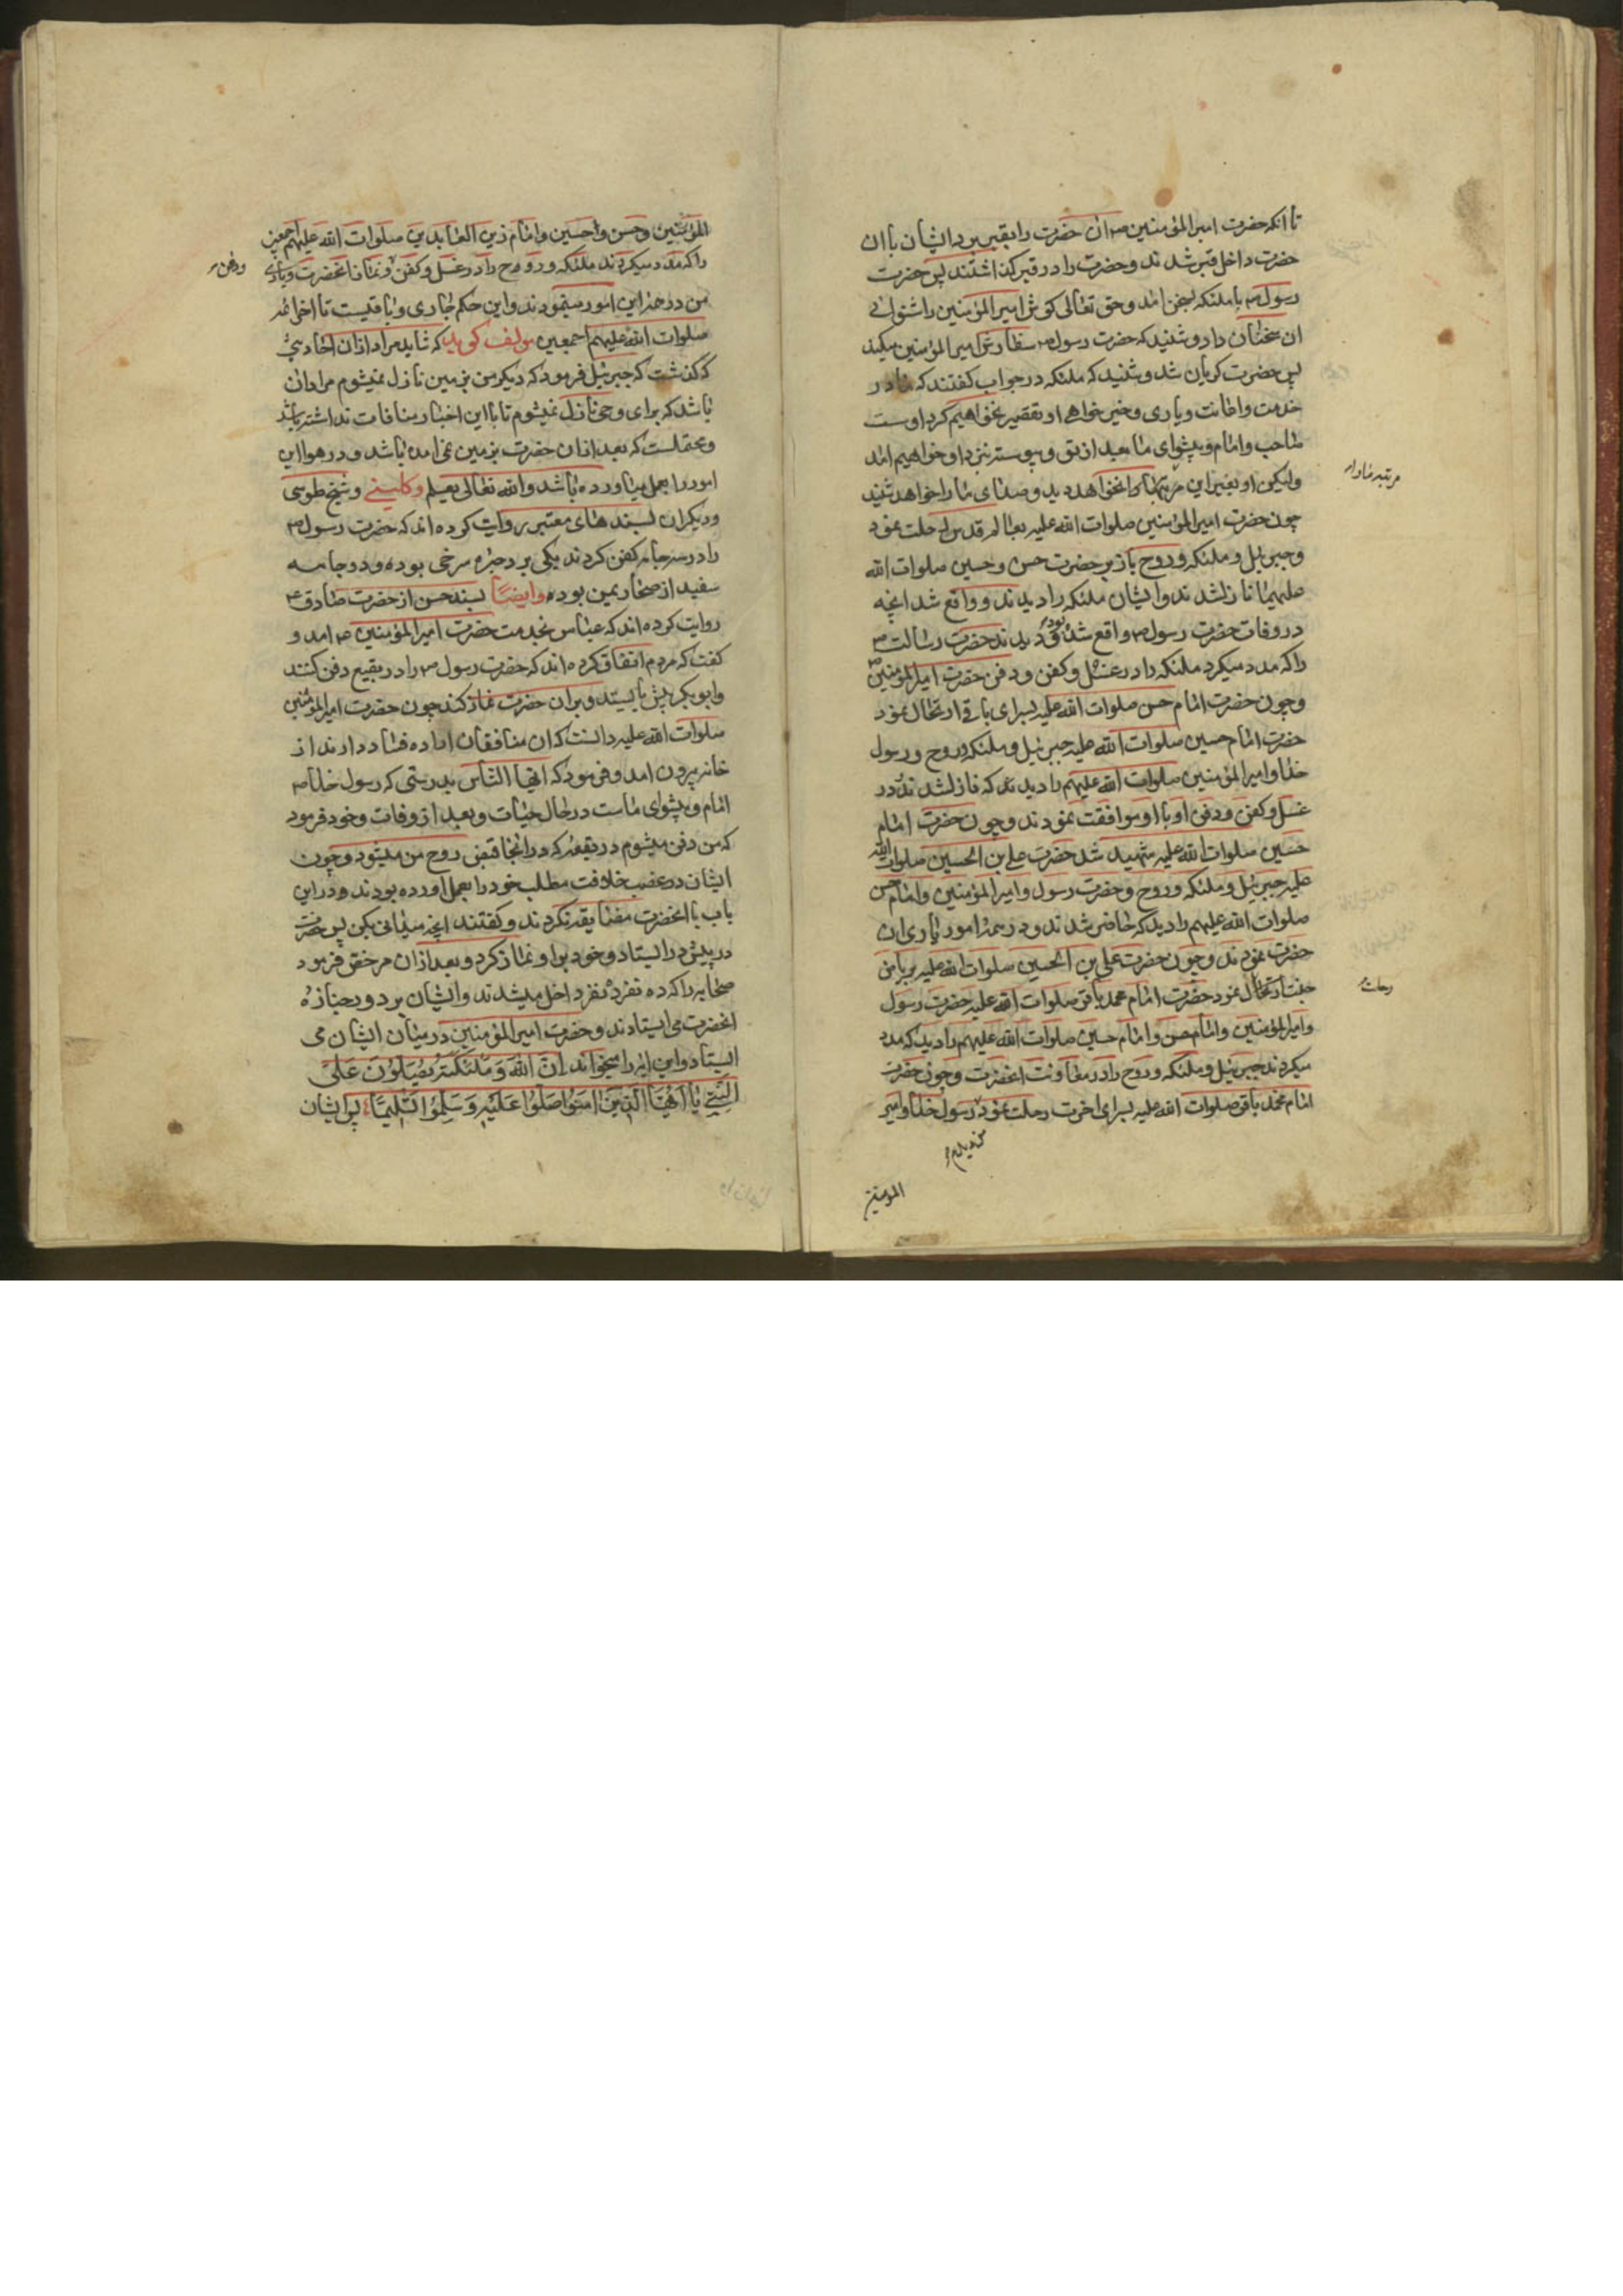 تا انکه حضرت امیر المؤمنین ص ان حضرت را بقبر برد ایشان با ان
حضرت داخل قبر شدند و حضرت را در قبر کذاشتند پس حضرت
رسول ص با ملئکه بسخن امد و حق تعالی کوش امیر المؤمنین را شنوائی
ان سخنان داد و شنید که حضرت رسول ص سفارش امیر المؤمنین میکند
پس حضرت کریان شد و شنید که ملئکه در جواب کفتند که ما در
خدمت و اعانت و یاری و خیر خواهی او تقصیر نخواهیم کرد اوست
صاحب و امام و پیشوای ما بعد از تو و پیوسته نزد او خواهیم امد
ولیکن او بغیر این مرتبه ما را نخواهد دید و صدای ما را خواهد شنید
مرتبه ما را
چون حضرت امیر المؤمنین صلوات الله علیه بعالم قدس رحلت نمود
و جبرئیل و ملئکه و روح باز بر حضرت حسن و حسین صلوات الله
علیهما نازل شدند و ایشان ملئکه را دیدند و واقع شد انچه
در وفات حضرت رسول ص واقع شده بود و دیدند حضرت رسالت ص
را که مدد میکرد ملئکه را در غسل و کفن و دفن حضرت امیر المؤمنین ص
و چون حضرت امام حسن صلوات الله علیه بسرای باقی ارتحال نمود
حضرت امام حسین صلوات الله علیه جبرئیل و ملئکه و روح و رسول
خدا و امیر المؤمنین صلوات الله علیهم را دیدند که نازل شدند و در
غسل و کفن و دفن او با او موافقت نمودند و چون حضرت امام
حسین صلوات الله علیه شهید شد حضرت علی بن الحسین صلوات الله
علیه جبرئیل و ملئکه و روح و حضرت رسول و امیر المؤمنین و امام حسن
صلوات الله علیهم را دید که حاضر شدند و در همه امور یاری ان
حضرت نمودند و چون حضرت علی بن الحسین صلوات الله علیه بریاض
جنت ارتحال نمود حضرت امام محمد باقر صلوات الله علیه حضرت رسول
و امیر المؤمنین و امام حسن و امام حسین صلوات الله علیهم را دید که مدد
میکردند جبرئیل و ملئکه و روح را در معاونت انحضرت و چون حضرت
امام محمد باقر صلوات الله علیه بسرای اخرت رحلت نمود رسول خدا و امیر
المؤمنین
المؤمنین و حسن و حسین و امام زین العابدین صلوات الله علیهم اجمعین
را که مدد میکردند ملئکه و روح را در غسل و کفن و نماز انحضرت و یاری
و دفن
من در همه این امور مینمودند و این حکم جاری و باقیست تا اخر ائمه
صلوات الله علیهم اجمعین مولف کوید که شاید مراد از ان احادیثی
که کذشت که جبرئیل فرمود که دیکر من بزمین نازل نمیشوم مراد ان
باشد که برای وحی نازل نمیشوم تا با این اخبار منافات نداشته باشد
و محتملست که بعد از ان حضرت بزمین نمی امده باشد و در هوا این
امور را بعمل میاورده باشد و الله تعالی یعلم و کلینی و شیخ طوسی
و دیکران بسند های معتبر روایت کرده اند که حضرت رسول ص
را در سه جامه کفن کردند یکی برد حبره سرخی بوده و دو جامه
سفید از صحار یمن بوده و ایضا بسند حسن از حضرت صادق ص
روایت کرده اند که عباس بخدمت حضرت امیر المؤمنین ص امد و
کفت که مردم اتفاق کرده اند که حضرت رسول ص را در بقیع دفن کنند
و ابوبکر پیش بایستد و بران حضرت نماز کند چون حضرت امیر المؤمنین
صلوات الله علیه دانست که ان منافقان اراده فساد دارند از
خانه بیرون امد و فرمود که ایها الناس بدرستی که رسول خدا ص
امام و پیشوای ماست در حال حیات و بعد از وفات و خود فرمود
که من دفن میشوم در بقعه که در انجا قبض روح من میشود و چون
ایشان در غصب خلافت مطلب خود را بعمل اورده بودند و در این
باب با انحضرت مضایقه نکردند و کفتند انچه میدانی بکن پس حضرت
در پیش در ایستاد و خود براو نماز کرد و بعد از ان مرخص فرمود
صحابه را که ده نفر ده نفر داخل میشدند و ایشان بر دور جنازه
انحضرت می ایستادند و حضرت امیر المؤمنین در میان ایشان می
ایستاد و این ایه را میخواند ان الله و ملئکته یصلون علی
النبی یا ایها الذین امنوا صلوا علیه و سلموا تسلیما پس ایشان